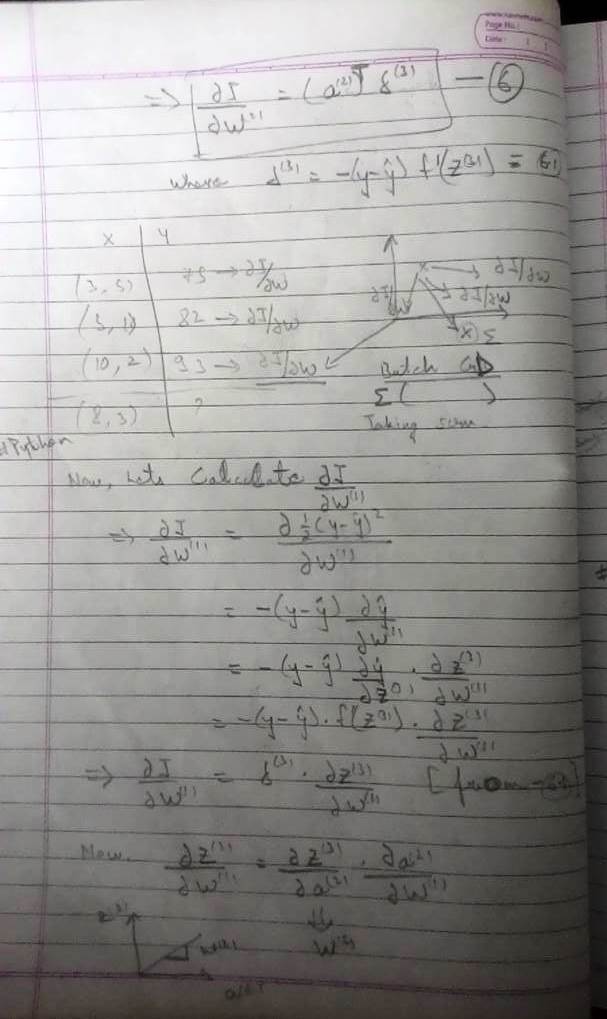 Page No.:
Date:
=> ∂J/∂W⁽¹⁾ = (a⁽²⁾)ᵀ δ⁽³⁾ — ⑥
where δ⁽³⁾ = -(y-ŷ) f'(z⁽³⁾) =
x | y
(3, 5) 75 → ∂J/∂W
(5, 1) 82 → ∂J/∂W
(10, 2) 93 → ∂J/∂W
(8, 3) ?
∂J/∂W
∂J/∂W
∂J/∂W
Σ
Batch GD
Σ ( )
Taking sum
Python
Now, Lets Calculate ∂J/∂W⁽¹⁾
=> ∂J/∂W⁽¹⁾ = ∂ ½(y-ŷ)²/∂W⁽¹⁾
= -(y-ŷ) ∂ŷ/∂W⁽¹⁾
= -(y-ŷ) ∂ŷ/∂z⁽³⁾ · ∂z⁽³⁾/∂W⁽¹⁾
= -(y-ŷ) · f'(z⁽³⁾) · ∂z⁽³⁾/∂W⁽¹⁾
=> ∂J/∂W⁽¹⁾ = δ⁽³⁾ · ∂z⁽³⁾/∂W⁽¹⁾ [from
Now. ∂z⁽³⁾/∂W⁽¹⁾ = ∂z⁽³⁾/∂a⁽²⁾ · ∂a⁽²⁾/∂W⁽¹⁾
⇓
W⁽²⁾